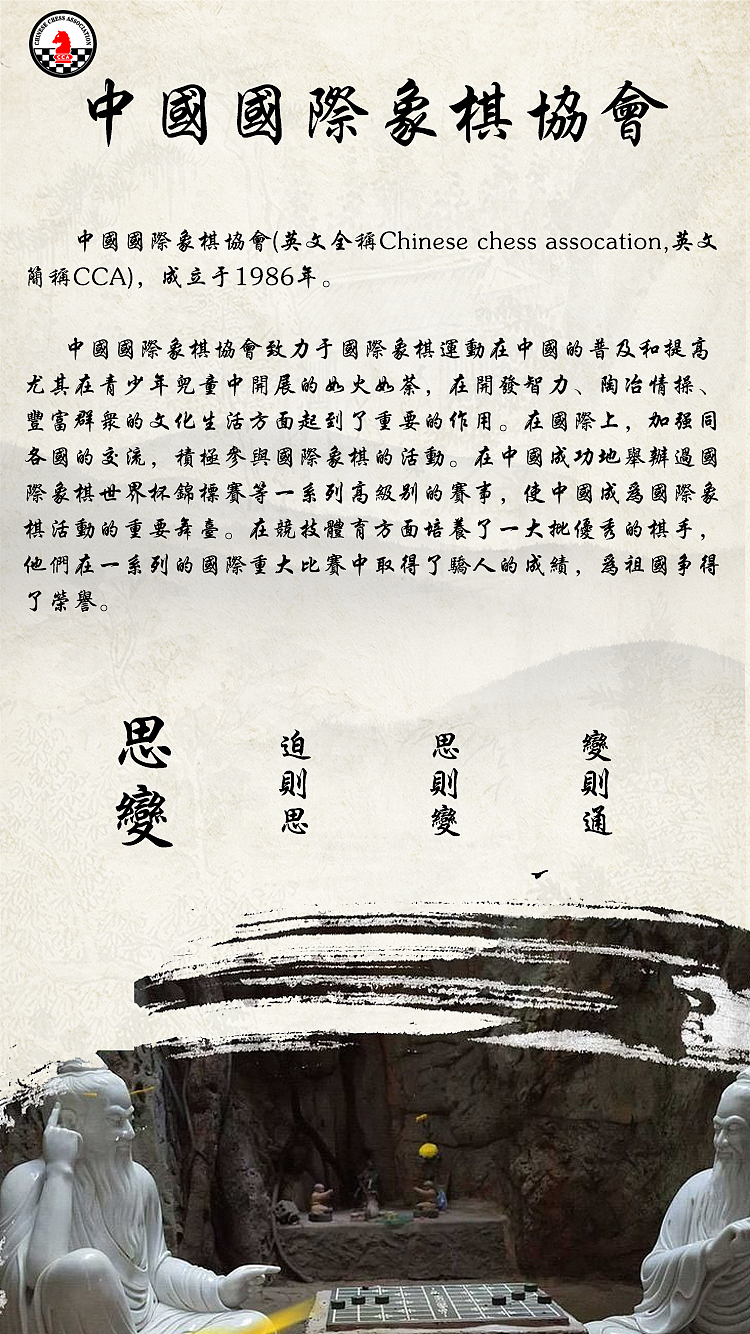 CHINESE CHESS ASSOCIATION
CCA
中國國際象棋協會
中國國際象棋協會(英文全稱Chinese chess assocation,英文
簡稱CCA)，成立于1986年。
中國國際象棋協會致力于國際象棋運動在中國的普及和提高
尤其在青少年兒童中開展的如火如荼，在開發智力、陶冶情操、
豐富群衆的文化生活方面起到了重要的作用。在國際上，加强同
各國的交流，積極參與國際象棋的活動。在中國成功地舉辦過國
際象棋世界杯錦標賽等一系列高級别的賽事，使中國成爲國際象
棋活動的重要舞臺。在競技體育方面培養了一大批優秀的棋手，
他們在一系列的國際重大比賽中取得了驕人的成績，爲祖國争得
了榮譽。
思變
迫則思
思則變
變則通